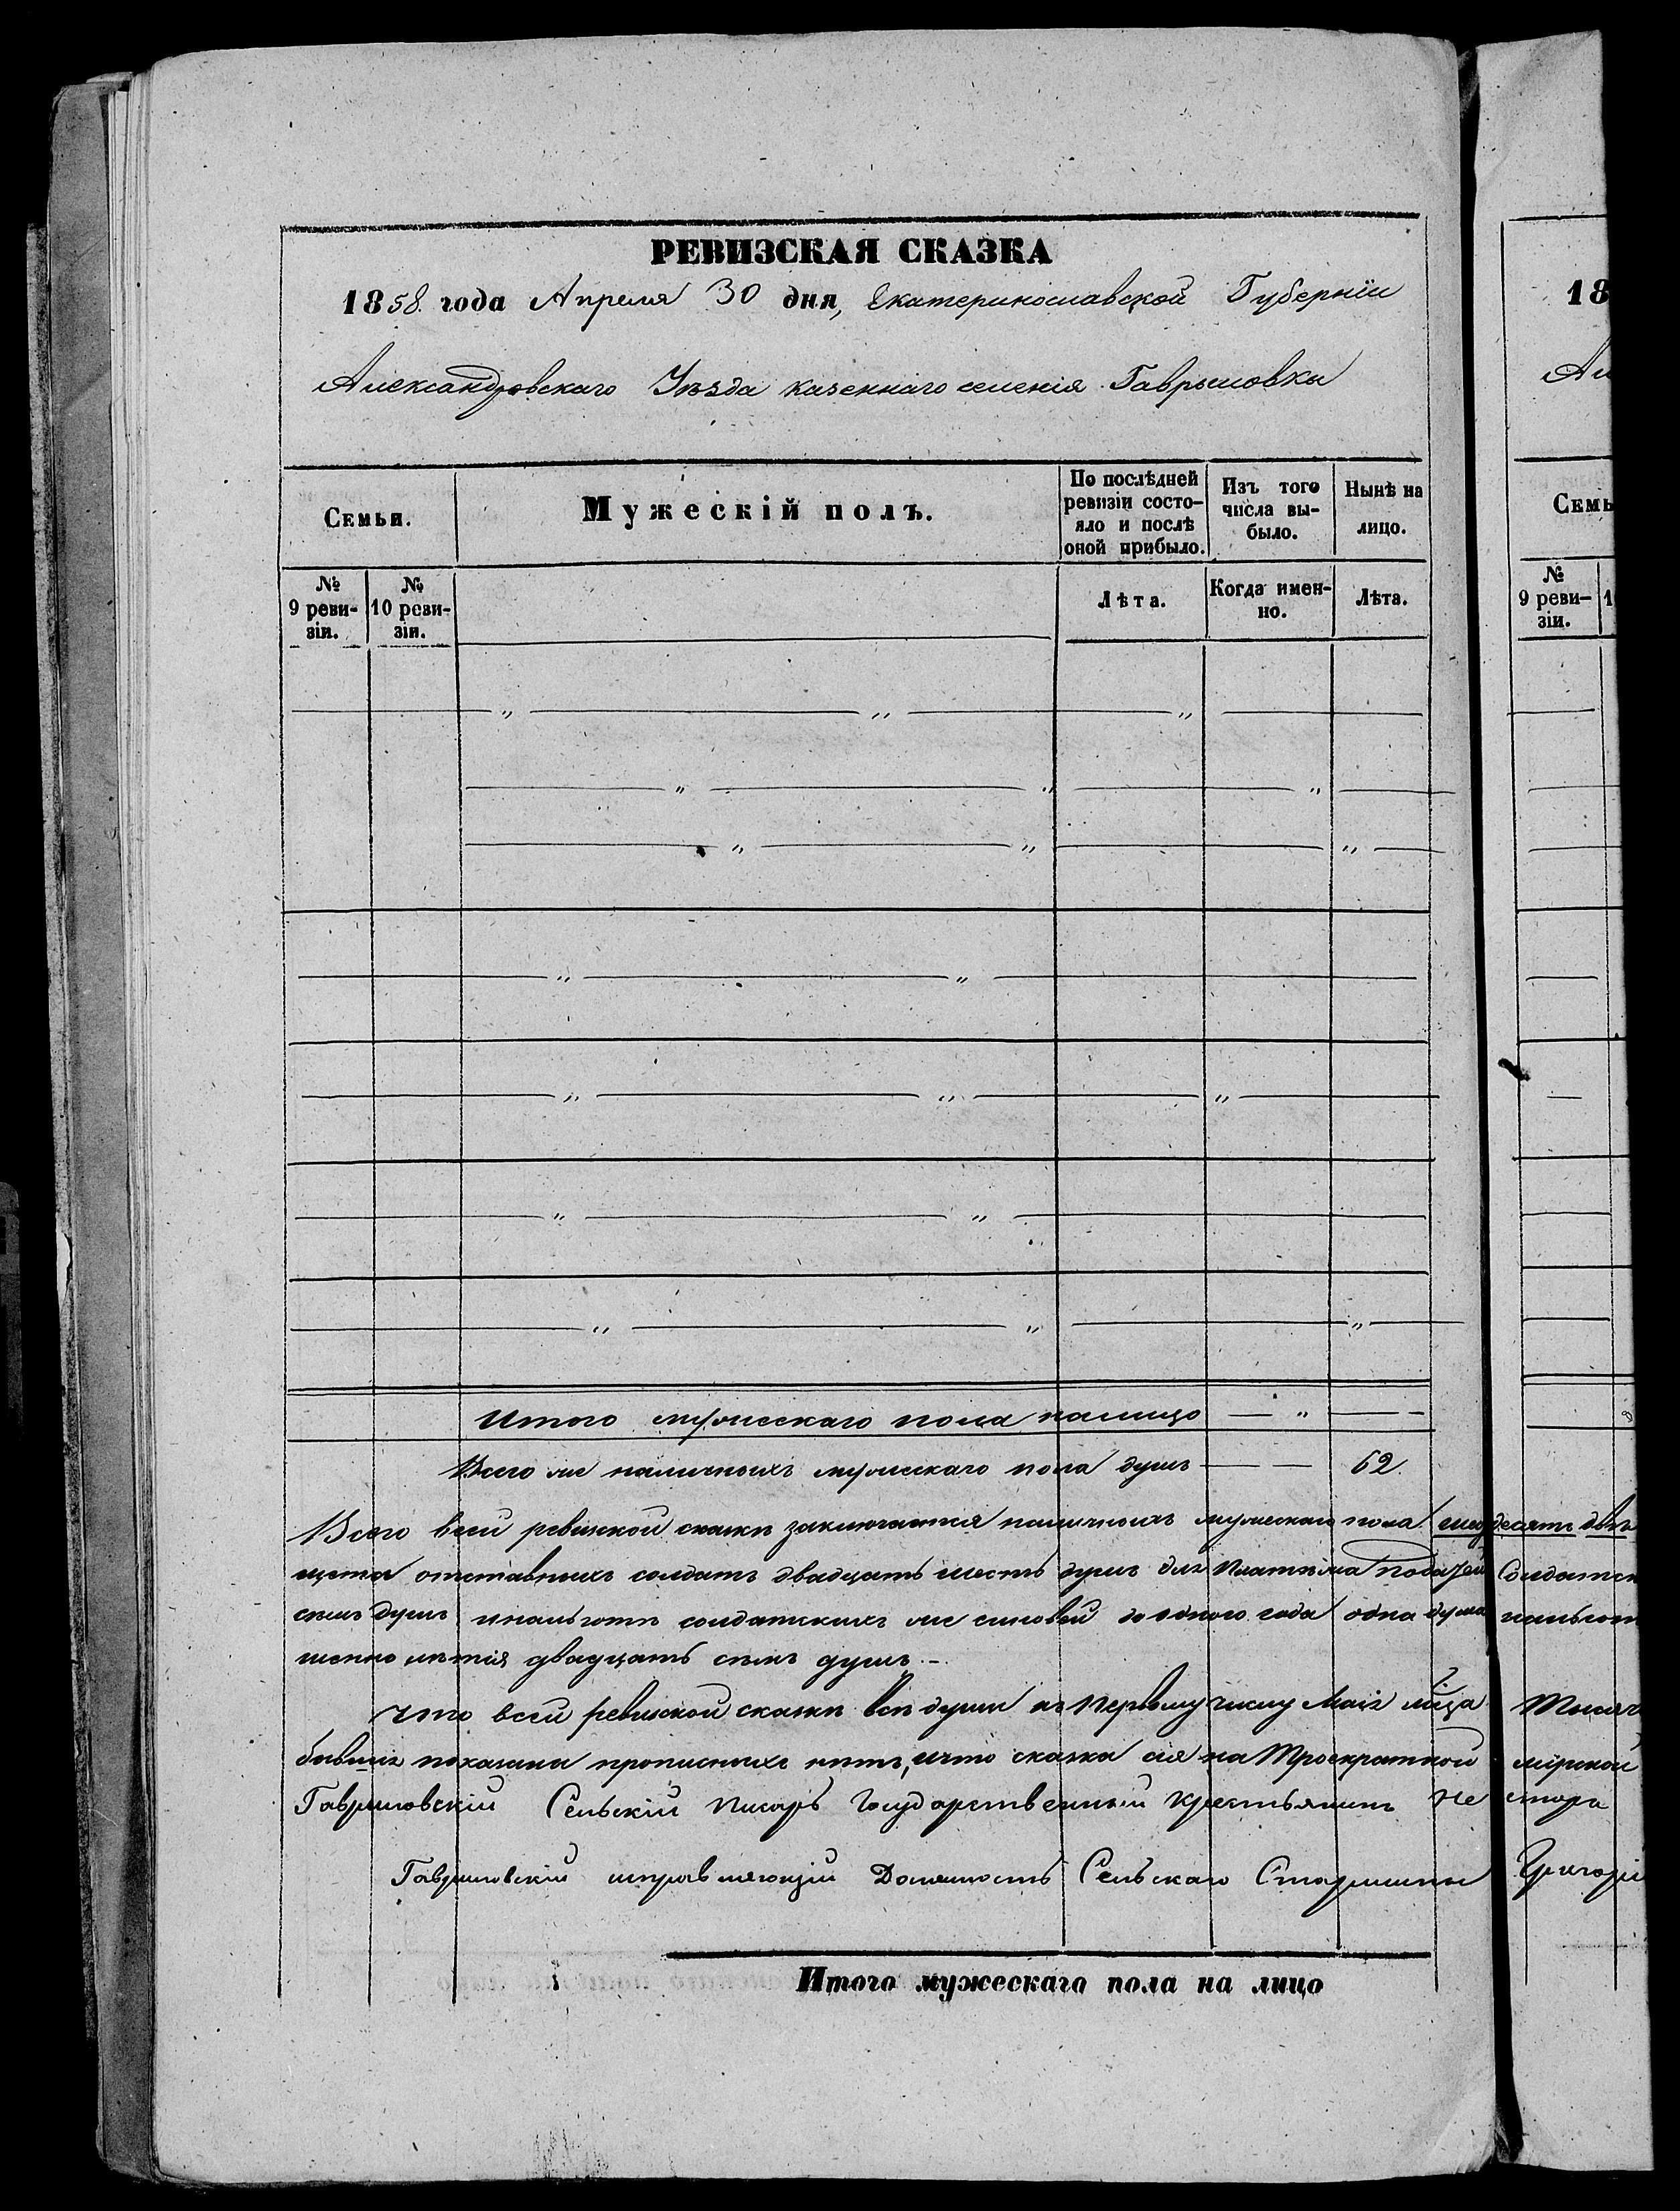 РЕВИЗСКАЯ СКАЗКА
1858. года Апреля 30 дня, Екатеринославской Губерніи
Александровскаго Уѣзда казеннаго селенія Гаврыловки
Семьи.
Мужескій полъ.
По послѣдней ревизіи состо-
яло и послѣ
оной прибыло.
Изъ того
числа вы-
было.
Нынѣ на
лицо.
№ 9 реви-
зіи.
№ 10 реви-
зіи.
Лѣта.
Когда имен-
но.
Лѣта.
Итого мужескаго пола налицо — " —
Всего же наличныхъ мужескаго пола душъ — — 62.
Всего всей ревизской сказкѣ заключается наличныхъ мужескаго пола шездесятъ двѣ
щета отставныхъ солдатъ двадцать шесть душъ для платежа податей Солдатск
семь душъ солдатскихъ же сыновей до одного года одна душа
лѣтія двадцать семь душъ. –
Что всей ревизской сказкѣ всѣ души къ первому числу Маія мѣца Тысяч
показана прописныхъ нѣтъ, и что сказка сія на Троекратной мірской
Гавриловскій Сельскій Писарь Государственный Крестьянинъ Нестора
Гавриловскій исправляющій Должность Сельскаго Старшины Григорій
Итого мужескаго пола на лицо
18
Ал
Семь
№
9 реви-
зіи.
1